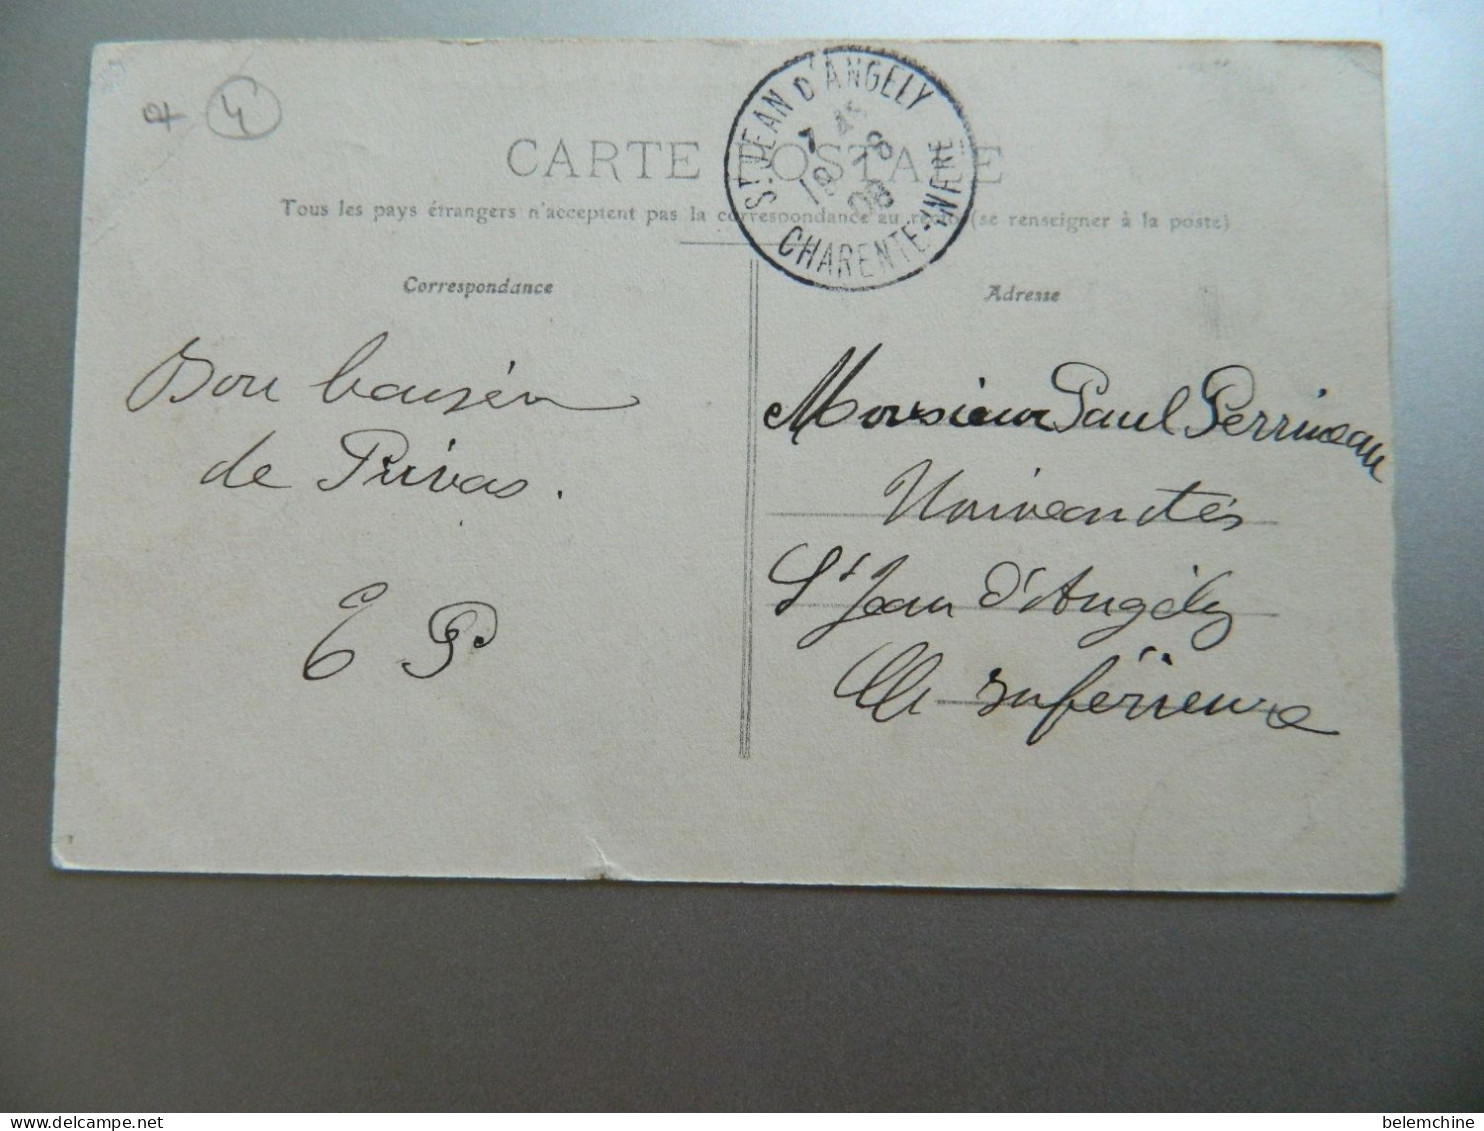 4
CARTE POSTALE
Tous les pays étrangers n'acceptent pas la correspondance au recto (se renseigner à la poste)
ST JEAN D'ANGELY
7 45
19 - 8
08
CHARENTE-INFRE
Correspondance
Bon baisér
de Privas.
E P
Adresse
Monsieur Paul Perrineau
Nouveautés
St Jean d'Angély
Che Inférieure
belemchine